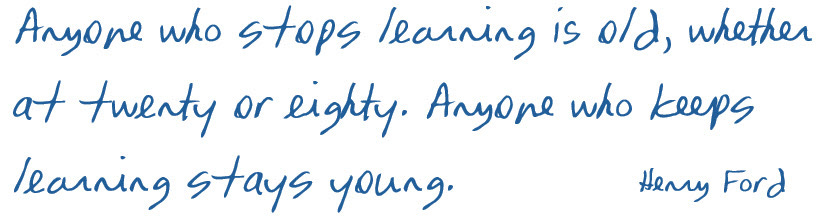 Anyone who stops learning is old, whether
at twenty or eighty. Anyone who keeps
learning stays young. Henry Ford